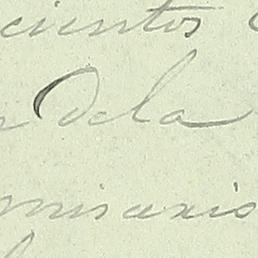 cientos
dela
misaris